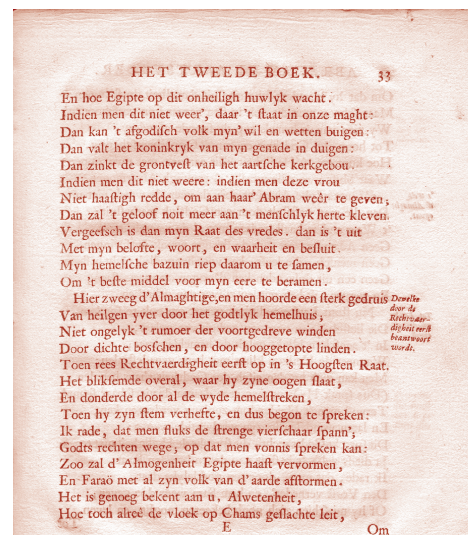 HET TWEEDE BOEK. 33
En hoe Egipte op dit onheiligh huwlyk wacht.
Indien men dit niet weer', daar 't ſtaat in onze maght:
Dan kan 't afgodiſch volk myn' wil en wetten buigen:
Dan valt het koninkryk van myn genade in duigen:
Dan zinkt de grontveſt van het aartſche kerkgebou.
Indien men dit niet weere: indien men deze vrou
Niet haaſtigh redde, om aan haar' Abram weêr te geven;
Dan zal 't geloof noit meer aan 't menſchlyk herte kleven.
Vergeefsch is dan myn Raat des vredes. dan is 't uit
Met myn belofte, woort, en waarheit en beſluit.
Myn hemelſche bazuin riep daarom u te ſamen,
Om 't beſte middel voor myn eere te beramen.
Hier zweeg d'Almaghtige, en men hoorde een ſterk gedruis
Van heilgen yver door het godtlyk hemelhuis;
Niet ongelyk 't rumoer der voortgedreve winden
Door dichte bosſchen, en door hooggetopte linden.
Toen rees Rechtvaerdigheit eerſt op in 's Hoogſten Raat.
Het blikſemde overal, waar hy zyne oogen ſlaat,
En donderde door al de wyde hemelſtreken,
Toen hy zyn ſtem verhefte, en dus begon te ſpreken:
Ik rade, dat men fluks de ſtrenge vierſchaar ſpann';
Godts rechten wege; op dat men vonnis ſpreken kan:
Zoo zal d' Almogenheit Egipte haaſt vervormen,
En Faraö met al zyn volk van d' aarde afſtormen.
Het is genoeg bekent aan u, Alwetenheit,
Hoe toch alreê de vloek op Chams geſlachte leit,
E Om
Dewelke
door de
Rechtvaer-
digheit eerſt
beantwoort
wordt.